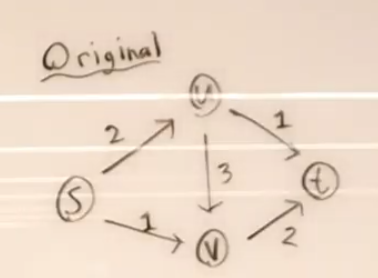 Original
u
2
1
3
S
t
1
v
2